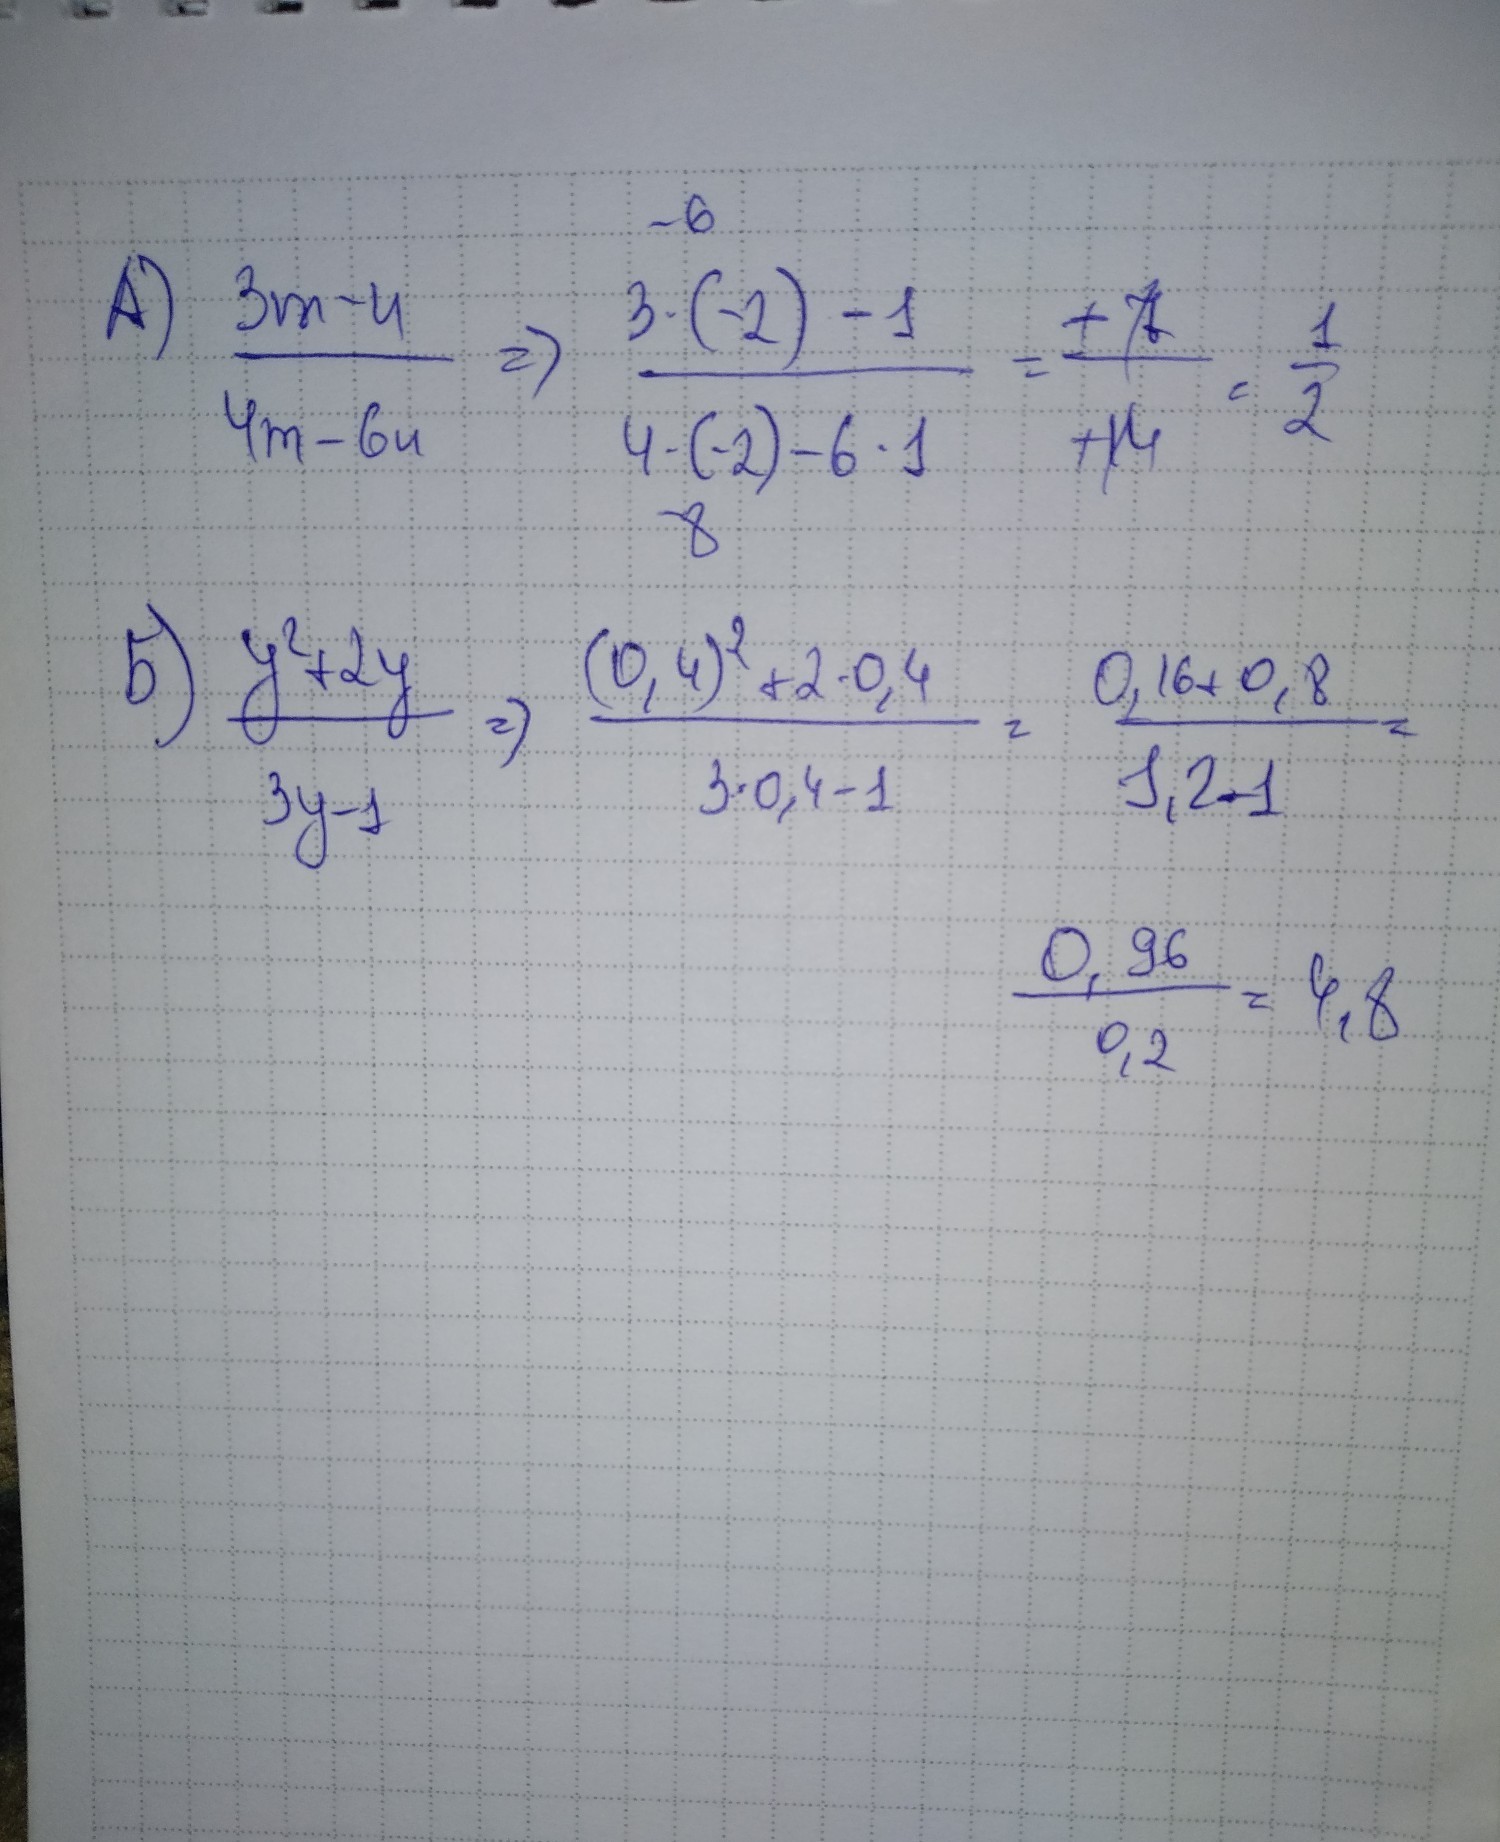 -6
А) 3m-n / 4m-6n => 3·(-2)-1 / 4·(-2)-6·1 = +7 / +14 = 1/2
-8
Б) y²+2y / 3y-1 => (0,4)²+2·0,4 / 3·0,4-1 = 0,16+0,8 / 1,2-1 =
0,96 / 0,2 = 4,8